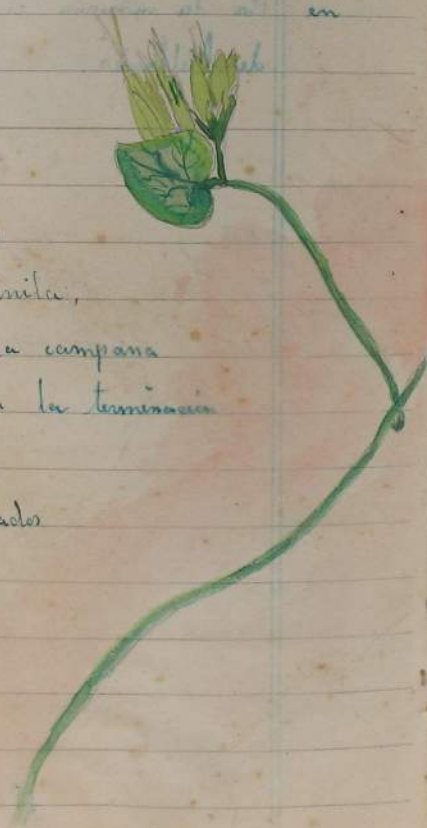 en
nila,
a campana
la terminación
ados